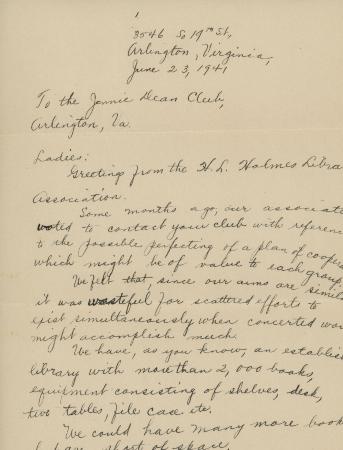 1
3546 So 19th St,
Arlington, Virginia,
June 23, 1941
To the Jennie Dean Club,
Arlington, Va.
Ladies:
Greeting from the H. L. Holmes Libra
Association.
Some months ago, our associati
voted to contact your club with referenc
to the possible perfecting of a plan of coopera
which might be of value to each group.
We felt that, since our aims are simila
it was wasteful for scattered efforts to
exist simultaneously when concerted wor
might accomplish much.
We have, as you know, an establis
library with more than 2,000 books,
equipment consisting of shelves, desk,
two tables, file case etc.
We could have many more book
short of space.